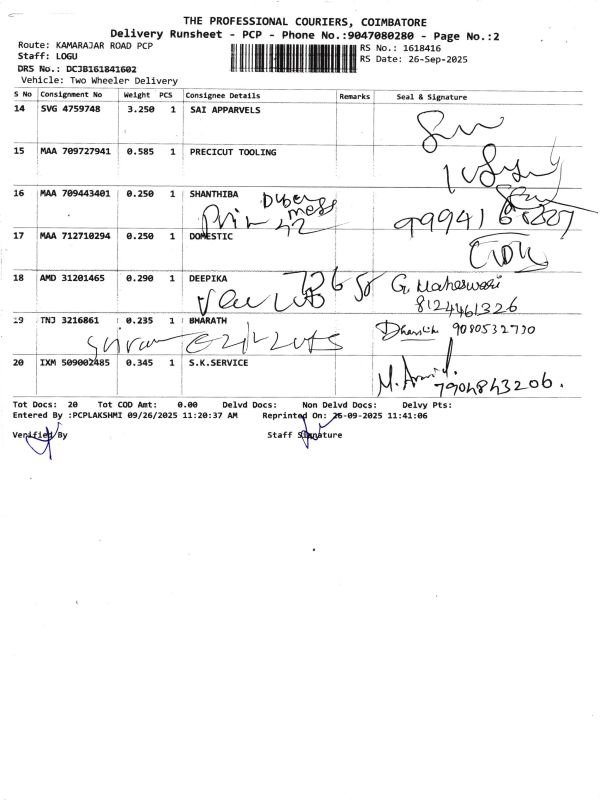 THE PROFESSIONAL COURIERS, COIMBATORE
Delivery Runsheet - PCP - Phone No.:9047080280 - Page No.:2
Route: KAMARAJAR ROAD PCP
RS No.: 1618416
Staff: LOGU
RS Date: 26-Sep-2025
DRS No.: DCJB161841602
Vehicle: Two Wheeler Delivery
S No Consignment No Weight PCS Consignee Details Remarks Seal & Signature
14 SVG 4759748 3.250 1 SAI APPARVELS
15 MAA 709727941 0.585 1 PRECICUT TOOLING
16 MAA 709443401 0.250 1 SHANTHIBA
17 MAA 712710294 0.250 1 DOMESTIC
18 AMD 31201465 0.290 1 DEEPIKA G. Maheswari
8124461326
19 TNJ 3216861 0.235 1 BHARATH 9080532730
20 IXM 509002485 0.345 1 S.K.SERVICE
7904843206.
Tot Docs: 20 Tot COD Amt: 0.00 Delvd Docs: Non Delvd Docs: Delvy Pts:
Entered By :PCPLAKSHMI 09/26/2025 11:20:37 AM Reprinted On: 26-09-2025 11:41:06
Verified By Staff Signature